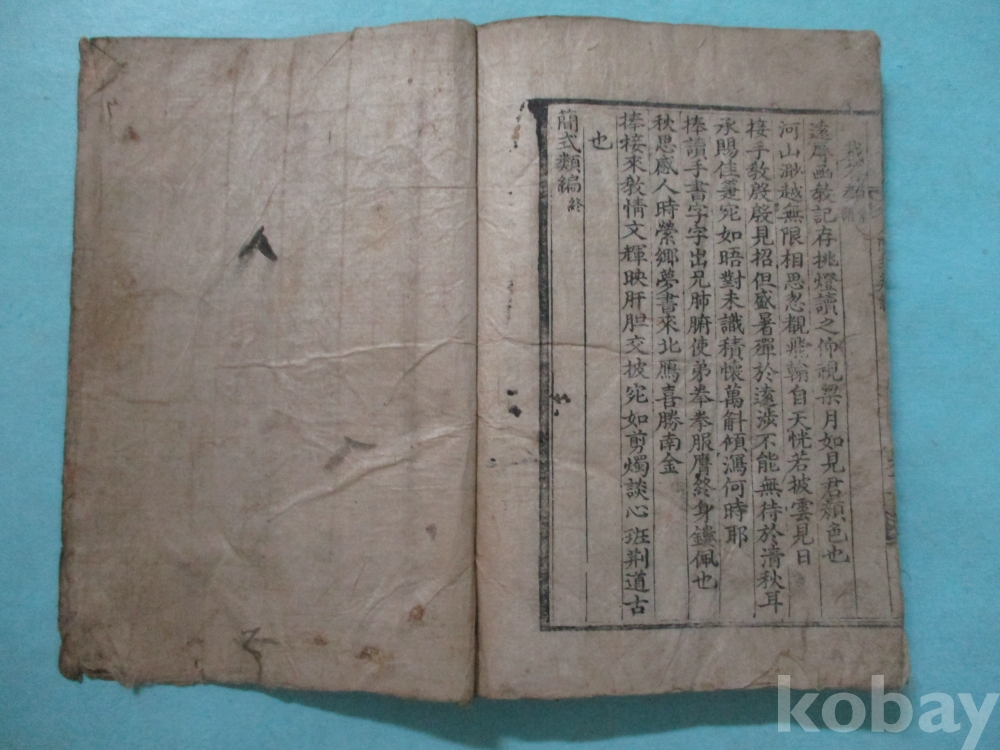 遠辱函教記存挑燈讀之仰視梁月如見君顏色也
河山渺越無限相思忽覩飛翰自天恍若披雲見日
接手教殷殷見招但盛暑殫於遠涉不能無待於清秋耳
承賜佳箑宛如晤對未識積懷萬斛傾瀉何時耶
捧讀手書字字出兄肺腑使弟拳拳服膺終身鐫佩也
秋思感人時縈鄉夢書來北鴈喜勝南金
捧接來教情文輝映肝胆交披宛如剪燭談心班荆道古
也
簡式類編終
kobay